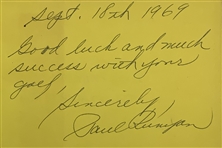 Sept. 18th 1969
Good luck and much
success with your
golf,
Sincerely,
Paul Runyan